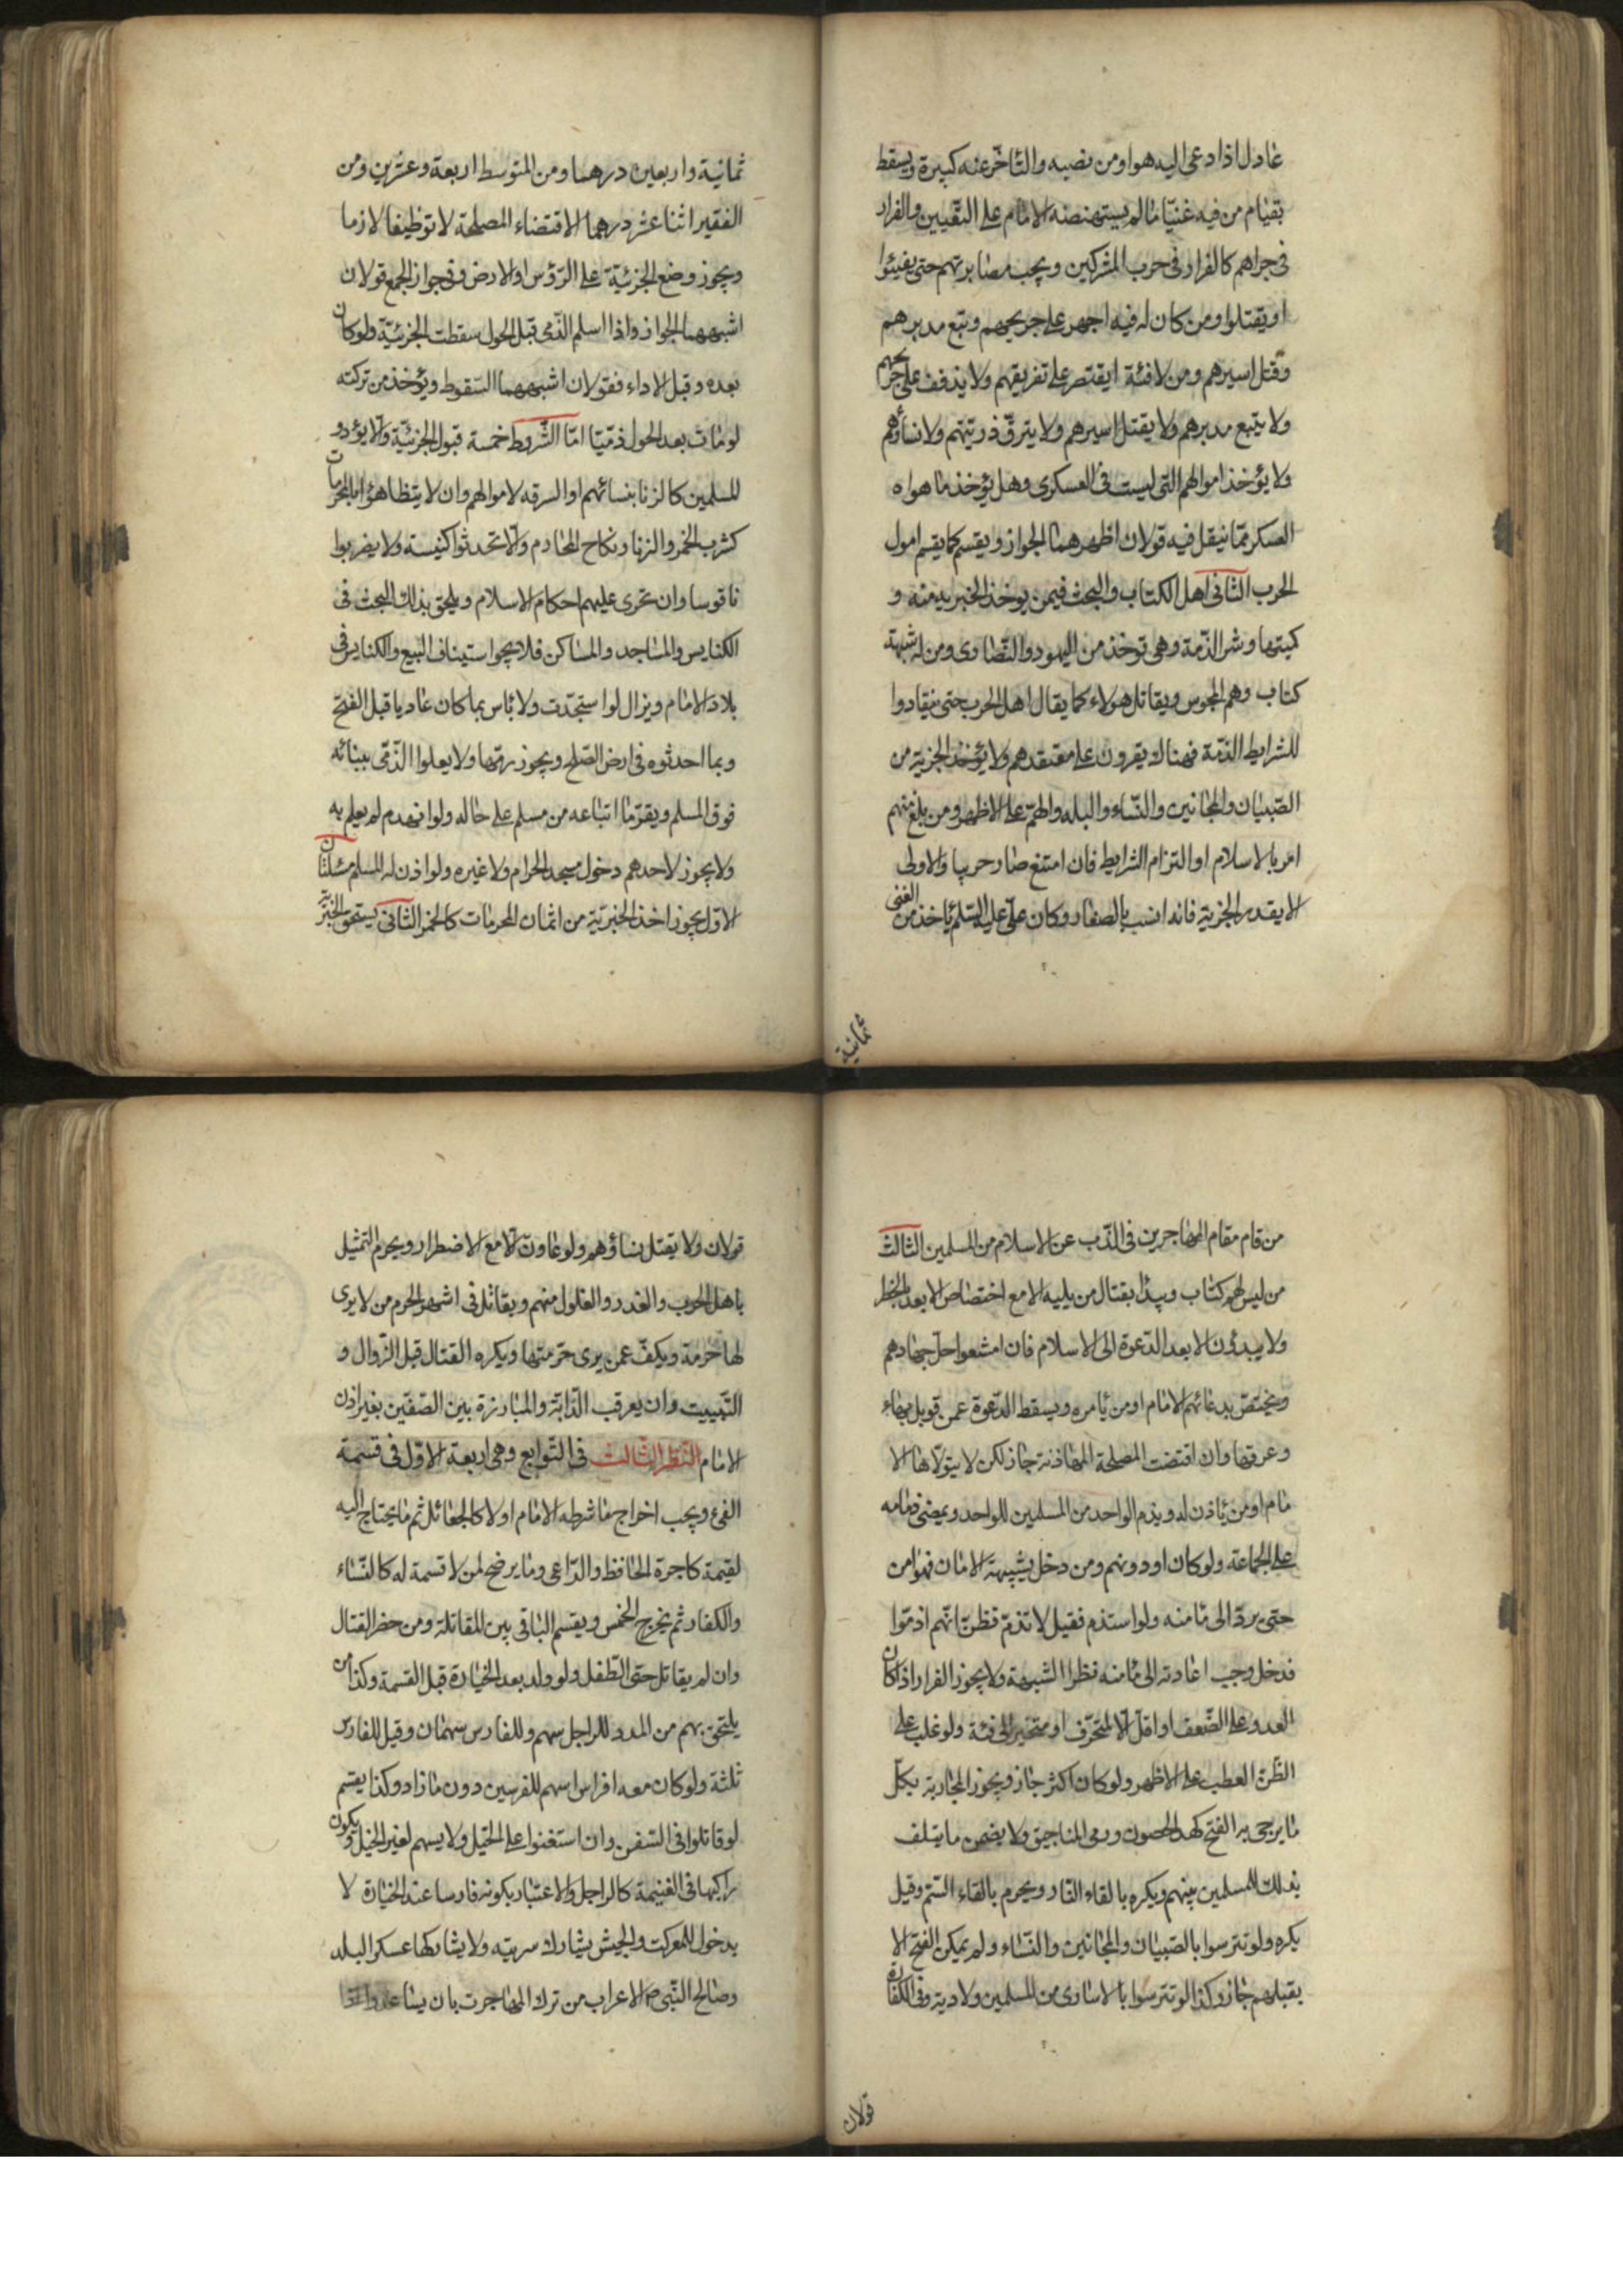 عادل اذا دعى اليه هو او من نصبه والتأخّر عنه كبيرة ويسقط
بقيام من فيه غنيّا ما لم يستهنضه الامام على التعّيين والفرار
فى حرابهم كالفرار فى حرب المشركين ويجب مصابرتهم حتى يفيئوا
او يقتلوا ومن كان له فيه اجهز على جريحهم وتبع مدبرهم
وقتل اسيرهم ومن لا فئة ايقتصر على تفريقهم ولا يذفف على جريحهم
ولا يتّبع مدبرهم ولا يقتل اسيرهم ولا يسترقّ ذريّتهم ولا نساؤهم
ولا يؤخذ اموالهم التى ليست فى العسكرى وهل يؤخذ ما هواه
العسكر ممّا ينقل فيه قولان اظهرهما الجواز ويقسم كما يقسم اموال
الحرب الثانى اهل الكتاب والبحث فيمن يوخذ الجزية منه و
كميتها وشر الذّمة وهى توخذ من اليهود والنّصارى ومن له شبهة
كتاب وهم المجوس ويقاتل هولاء كما يقال اهل الحرب حتى ينقادوا
للشرايط الذمّة فهناك يقرون على معتقدهم ولا يؤخذ الجزية من
الصّبيان والمجانين والنّساء والبله والهمّ على الاظهر ومن بلغ منهم
امر بالاسلام او التزام الشرايط فان امتنع صار حربيا والاولى
الا يقدر الجزية فانه انسب بالصغار وكان علىّ عليه السّلم يأخذ من الغنى
ثمانية
ثمانية واربعين درهما ومن المتوسط اربعة وعشرين ومن
الفقير اثنا عشر درهما لاقتضاء المصلحة لا توظيفا لازما
ويجوز وضع الجزئيّة على الرّؤس او الارض وفى جواز الجمع قولان
اشبههما الجواز واذا اسلم الذّمى قبل الحول سقطت الجزئيّة ولو كان
بعده وقبل الاداء فقولان اشبههما السّقوط ويؤخذ من تركته
لو مات بعد الحول ذمّيّا امّا الشّروط خمسة قبول الجزئيّة والّا يؤدو
للمسلمين كالزنا بنسائهم او السرقه لاموالهم وان لا يتظاهؤا بالمحرمات
كشرب الخمر والزنا ونكاح المحارم والّا تحدثوا كنيسة ولا يضربوا
ناقوسا وان تجرى عليهم احكام الاسلام ويلحق بذلك البحث فى
الكنايس والمساجد والمساكن فلا يجوا استيناف البيع والكنايس فى
بلاد الامام ويزال لو استجدّت ولا بأس بما كان عاديا قبل الفتح
وبما احدثوه فى ارض الصّلح ويجوز رمّها ولا يعلوا الذّمّى ببنائه
فوق المسلم ويقرّ ما ابتاعه من مسلم على حاله ولو انهدم لم يعلم به
ولا يجوز لاحدهم دخول مسجد الحرام ولا غيره ولو اذن له المسلم مسئلتان
الاوّل يجوز اخذ الجزيّة من اثمان المحرمات كالخمر الثانى يستحق الجزية
من قام مقام المهاجرين فى الذّب عن الاسلام من المسلمين الثالث
من ليس لهم كتاب ويبدأ بقتال من يليه الا مع اختصاص الابعد بالخطر
ولا يبدؤن الا بعد الدّعوة الى الاسلام فان امتنعوا حلّ جهادهم
ويختصّ بدعائهم الامام او من يأمره ويسقط الدّعوة عمن قوبل بهاء
وعرفها وان اقتضت المصلحة المهاذنة جاز لكن لا يتولّاها الا
مام او من يأذن له ويذم الواحد من المسلمين للواحد ويمضى ذمامه
على الجماعة ولو كان ادونهم ومن دخل بشبهة الامان فهو امن
حتى يردّ الى مامنه ولو استذم فقيل لا تذمّ فظنّ انّهم اذمّوا
فدخل وجب اعادته الى مامنه نظرا الشبهة ولا يجوز الفرار اذا كان
العدو على الضّعف او اقل الّا لمتحرّف او متحيز الى فئة ولو غلب على
الظّن العطب على الاظهر ولو كان اكثر جاز ويجوز المحاربة بكلّ
ما يرجى به الفتح كهدم الحصون ورمى المناجيق ولا يضمن ما يتلف
بذلك للمسلمين بينهم ويكره بالقاء النّار ويحرم بالقاء السّم وقيل
يكره ولو تترسوا بالصّبيان والمجانين والنّساء ولم يمكن الفتح الا
بقتلهم جاز وكذا لو تترسوا بالاسارى من المسلمين ولا دية وفى الكفارة
قولان
قولان ولا يقتل نساؤهم ولو عاونّ الّا مع الاضطرار ويحرم التمثيل
باهل الحرب والغدر والغلول منهم ويقاتل فى اشهر الحرم من لا يرى
لها حرمة ويكفّ عمن يرى حرمتها ويكره القتال قبل الزّوال و
التّبييت وان يعرقب الدّابّة والمبارزة بين الصّفين بغير اذن
الامام النّظر الثّالث فى التّوابع وهى اربعة الاوّل فى قسمة
الفىء ويجب اخراج ما شرطه الامام اولا كالجعائل ثم ما يحتاج اليه
لقيمة كاجرة الحافظ والرّاعى وما يرضخ لمن لا قسمة له كالنّساء
والكفار ثم يخرج الخمس ويقسم الباقى بين المقاتلة ومن حضر القتال
وان لم يقاتل حتى الطّفل ولو ولد بعد الحيازة قبل القسمة وكذا من
يلتحق بهم من المدد للراجل سهم وللفارس سهمان وقيل للفارس
ثلثة ولو كان معه افراس اسهم للفرسين دون ما زاد وكذا يقسم
لو قاتلوا فى السّفن وان استغنوا على الخيل ولا يسهم لغير الخيل ويكون
راكبها فى الغنيمة كالراجل والاعتبار بكونه فارسا عند الحيازة لا
بدخول المعركت والجيش يشارك سريته ولا يشاركها عسكر البلد
وصالح النّبى ص الاعراب من ترك المهاجرت بان يساعدوا